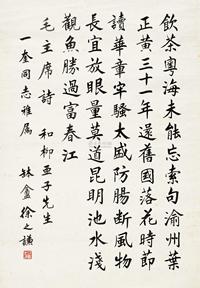 飲茶粵海未能忘索句渝州葉
正黃三十一年還舊國落花時節
讀華章牢騷太盛防腸斷風物
長宜放眼量莫道昆明池水淺
觀魚勝過富春江
毛主席詩 和柳亞子先生
一奎同志雅屬
盦徐之謙